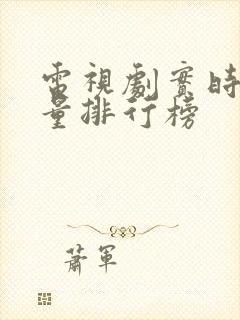 電視劇實時
量排行榜
蕭軍